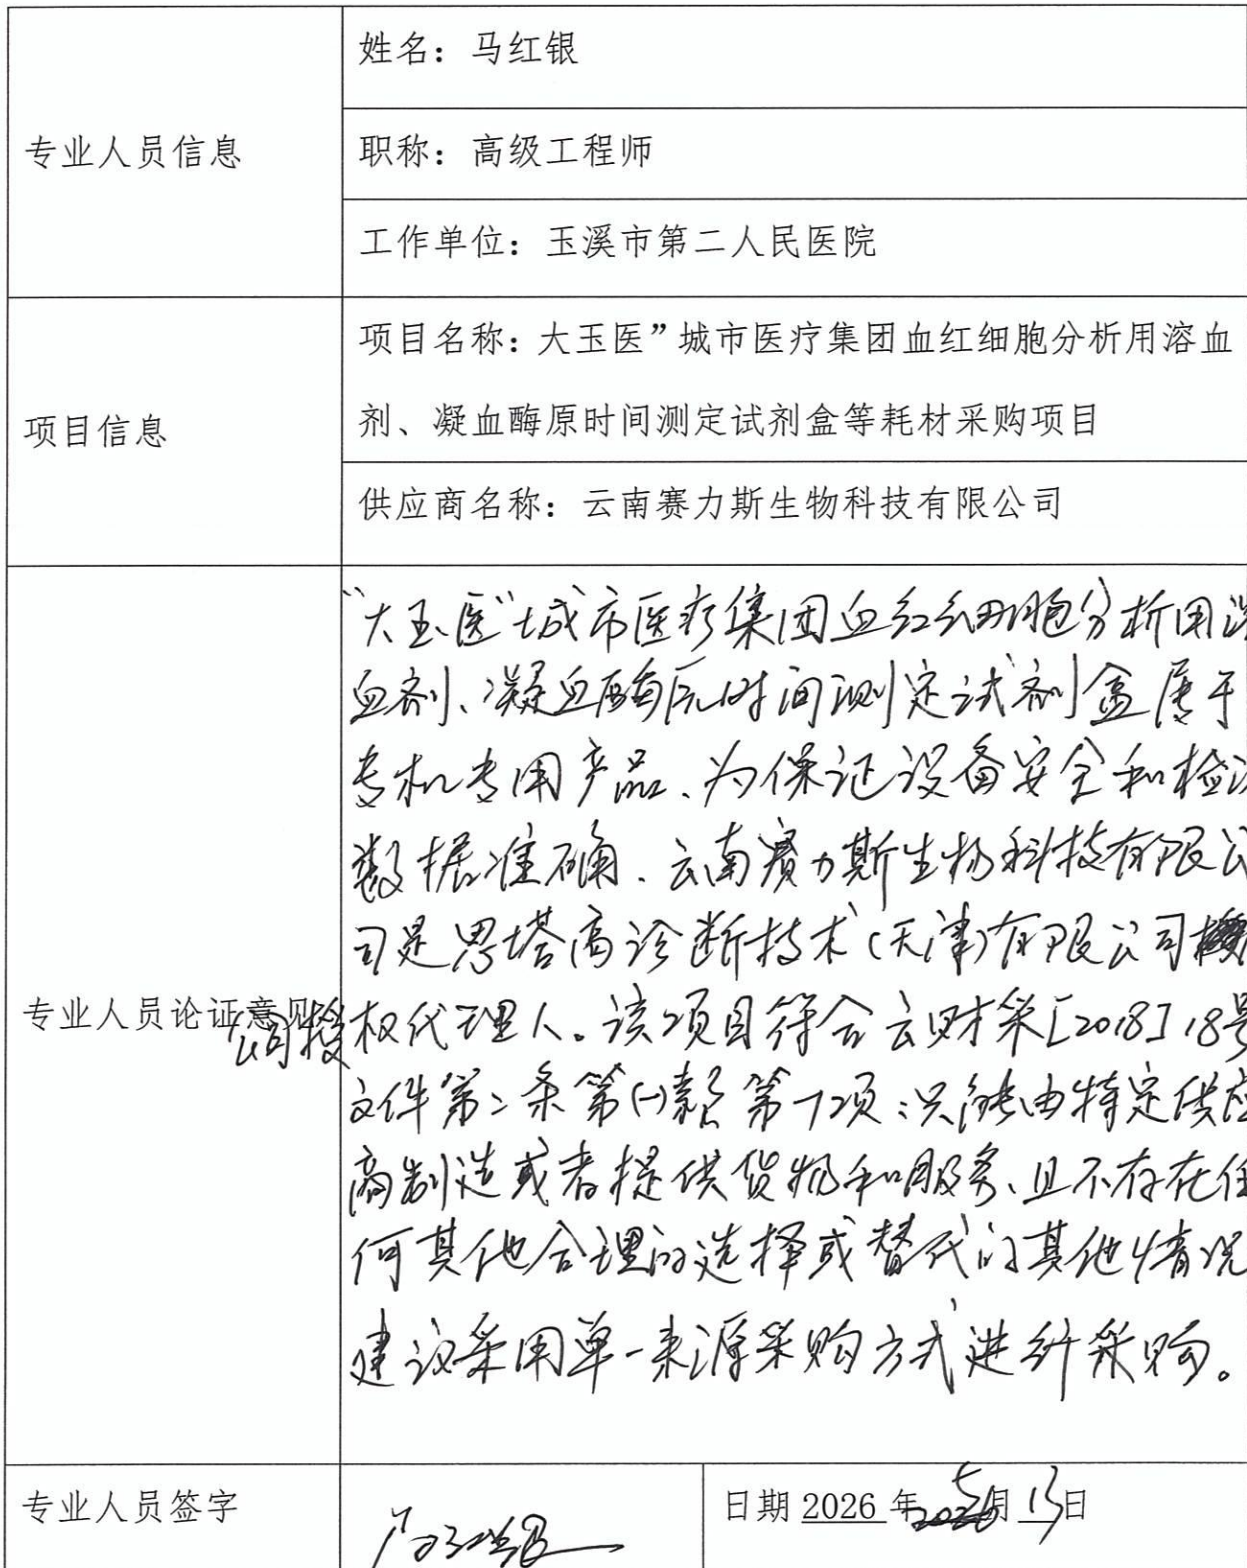 专业人员信息
姓名：马红银
职称：高级工程师
工作单位：玉溪市第二人民医院
项目信息
项目名称：大玉医”城市医疗集团血红细胞分析用溶血
剂、凝血酶原时间测定试剂盒等耗材采购项目
供应商名称：云南赛力斯生物科技有限公司
专业人员论证意见
“大玉医”城市医疗集团血红细胞分析用溶
血剂、凝血酶原时间测定试剂盒属于
专机专用产品、为保证设备安全和检测
数据准确、云南赛力斯生物科技有限公
司是思塔高诊断技术(天津)有限公司
公司授权代理人。该项目符合云财采[2018]18号
文件第二条第(一)款第7项:只能由特定供应
商制造或者提供货物和服务、且不存在任
何其他合理的选择或替代的其他情况
建议采用单一来源采购方式进行采购。
专业人员签字
马红银
日期 2026 年 5 月 13 日